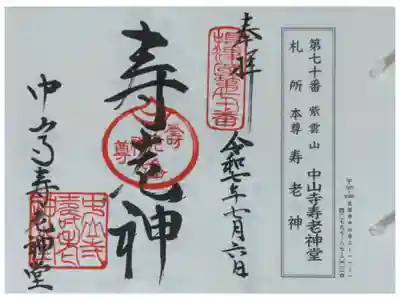 第七十番 紫雲山 中山寺寿老神堂
札所本尊 寿老神
奉拝
令和七年七月六日
寿老神
中山寺寿老神堂